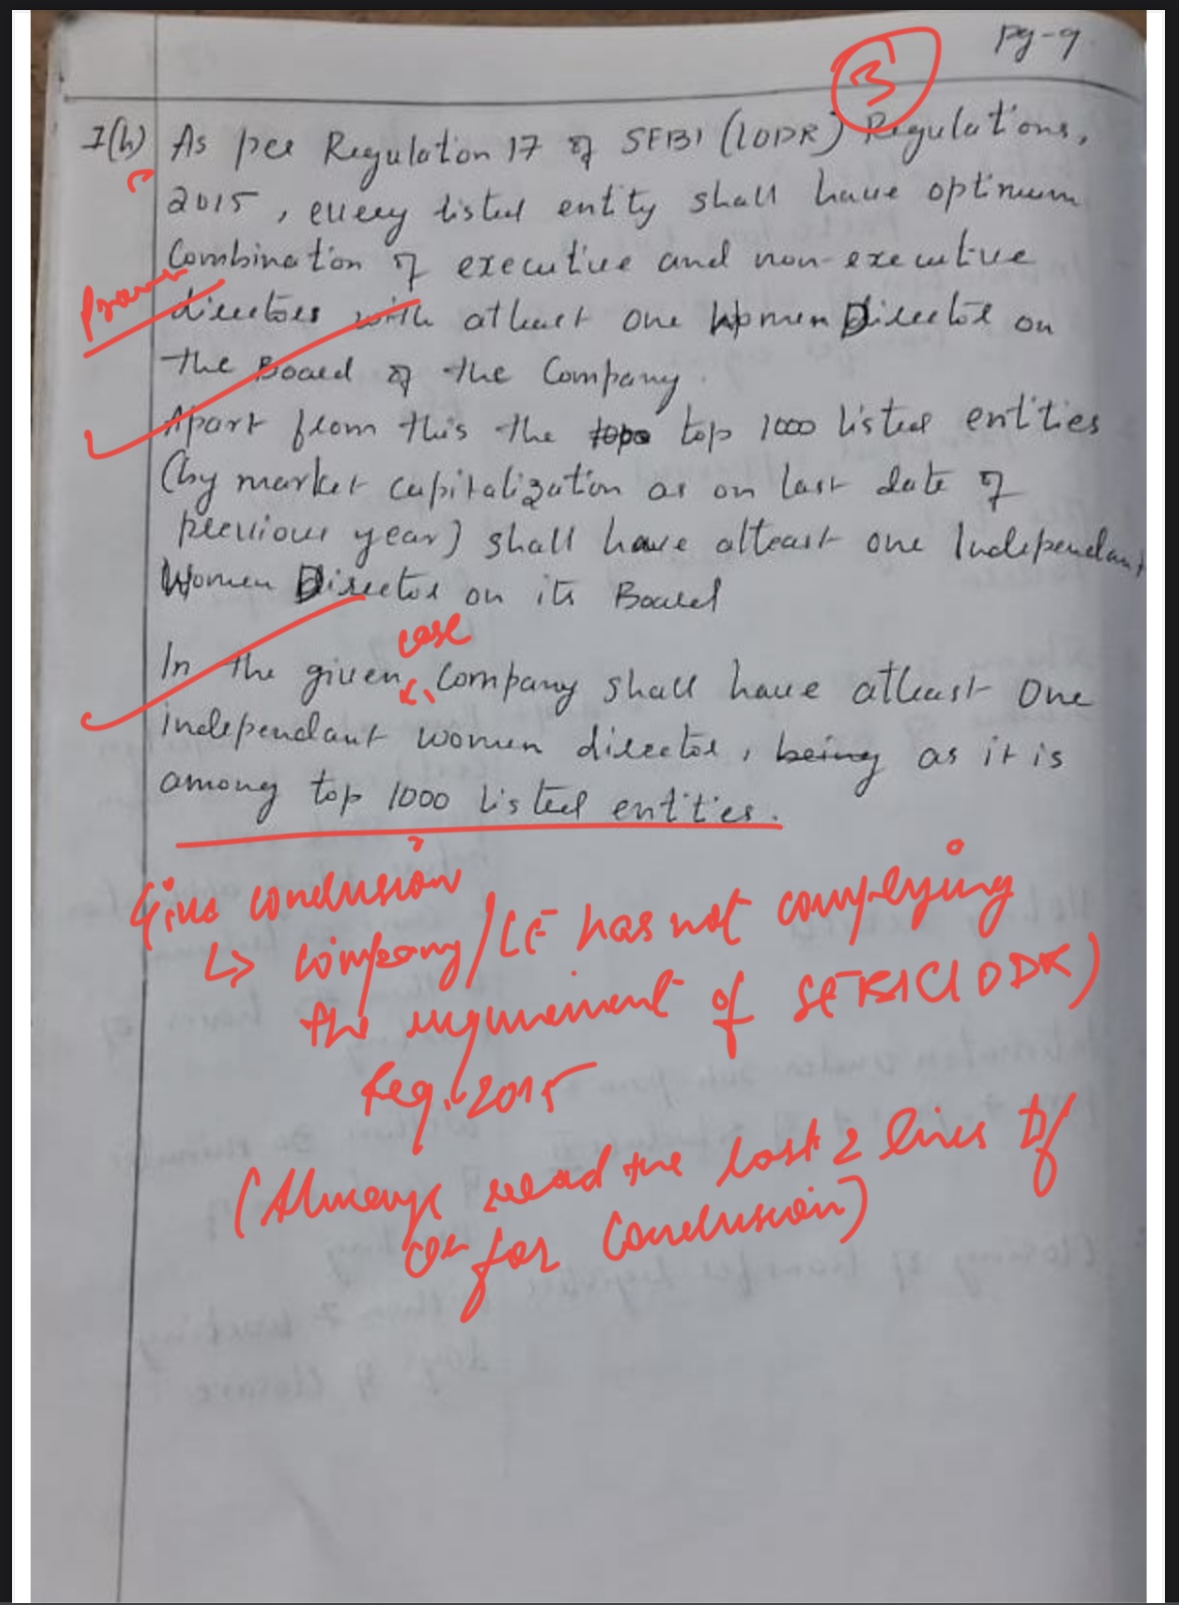 pg-9
3
1(h) As per Regulation 17 of SEBI (LODR) Regulations,
2015, every listed entity shall have optimum
Combination of executive and non-executive
directors with atleast one Women Director on
the Board of the Company.
Apart from this the top 1000 listed entities
(by market capitalization as on last date of
previous year) shall have atleast one Independant
Women Director on its Board
case
In the given Company shall have atleast One
independant women director, being as it is
among top 1000 listed entities.
Give conclusion
↳ company/LE has not complying
the requirement of SEBI(LODR)
Reg. 2015
(Always read the last 2 lines of
for Conclusion)